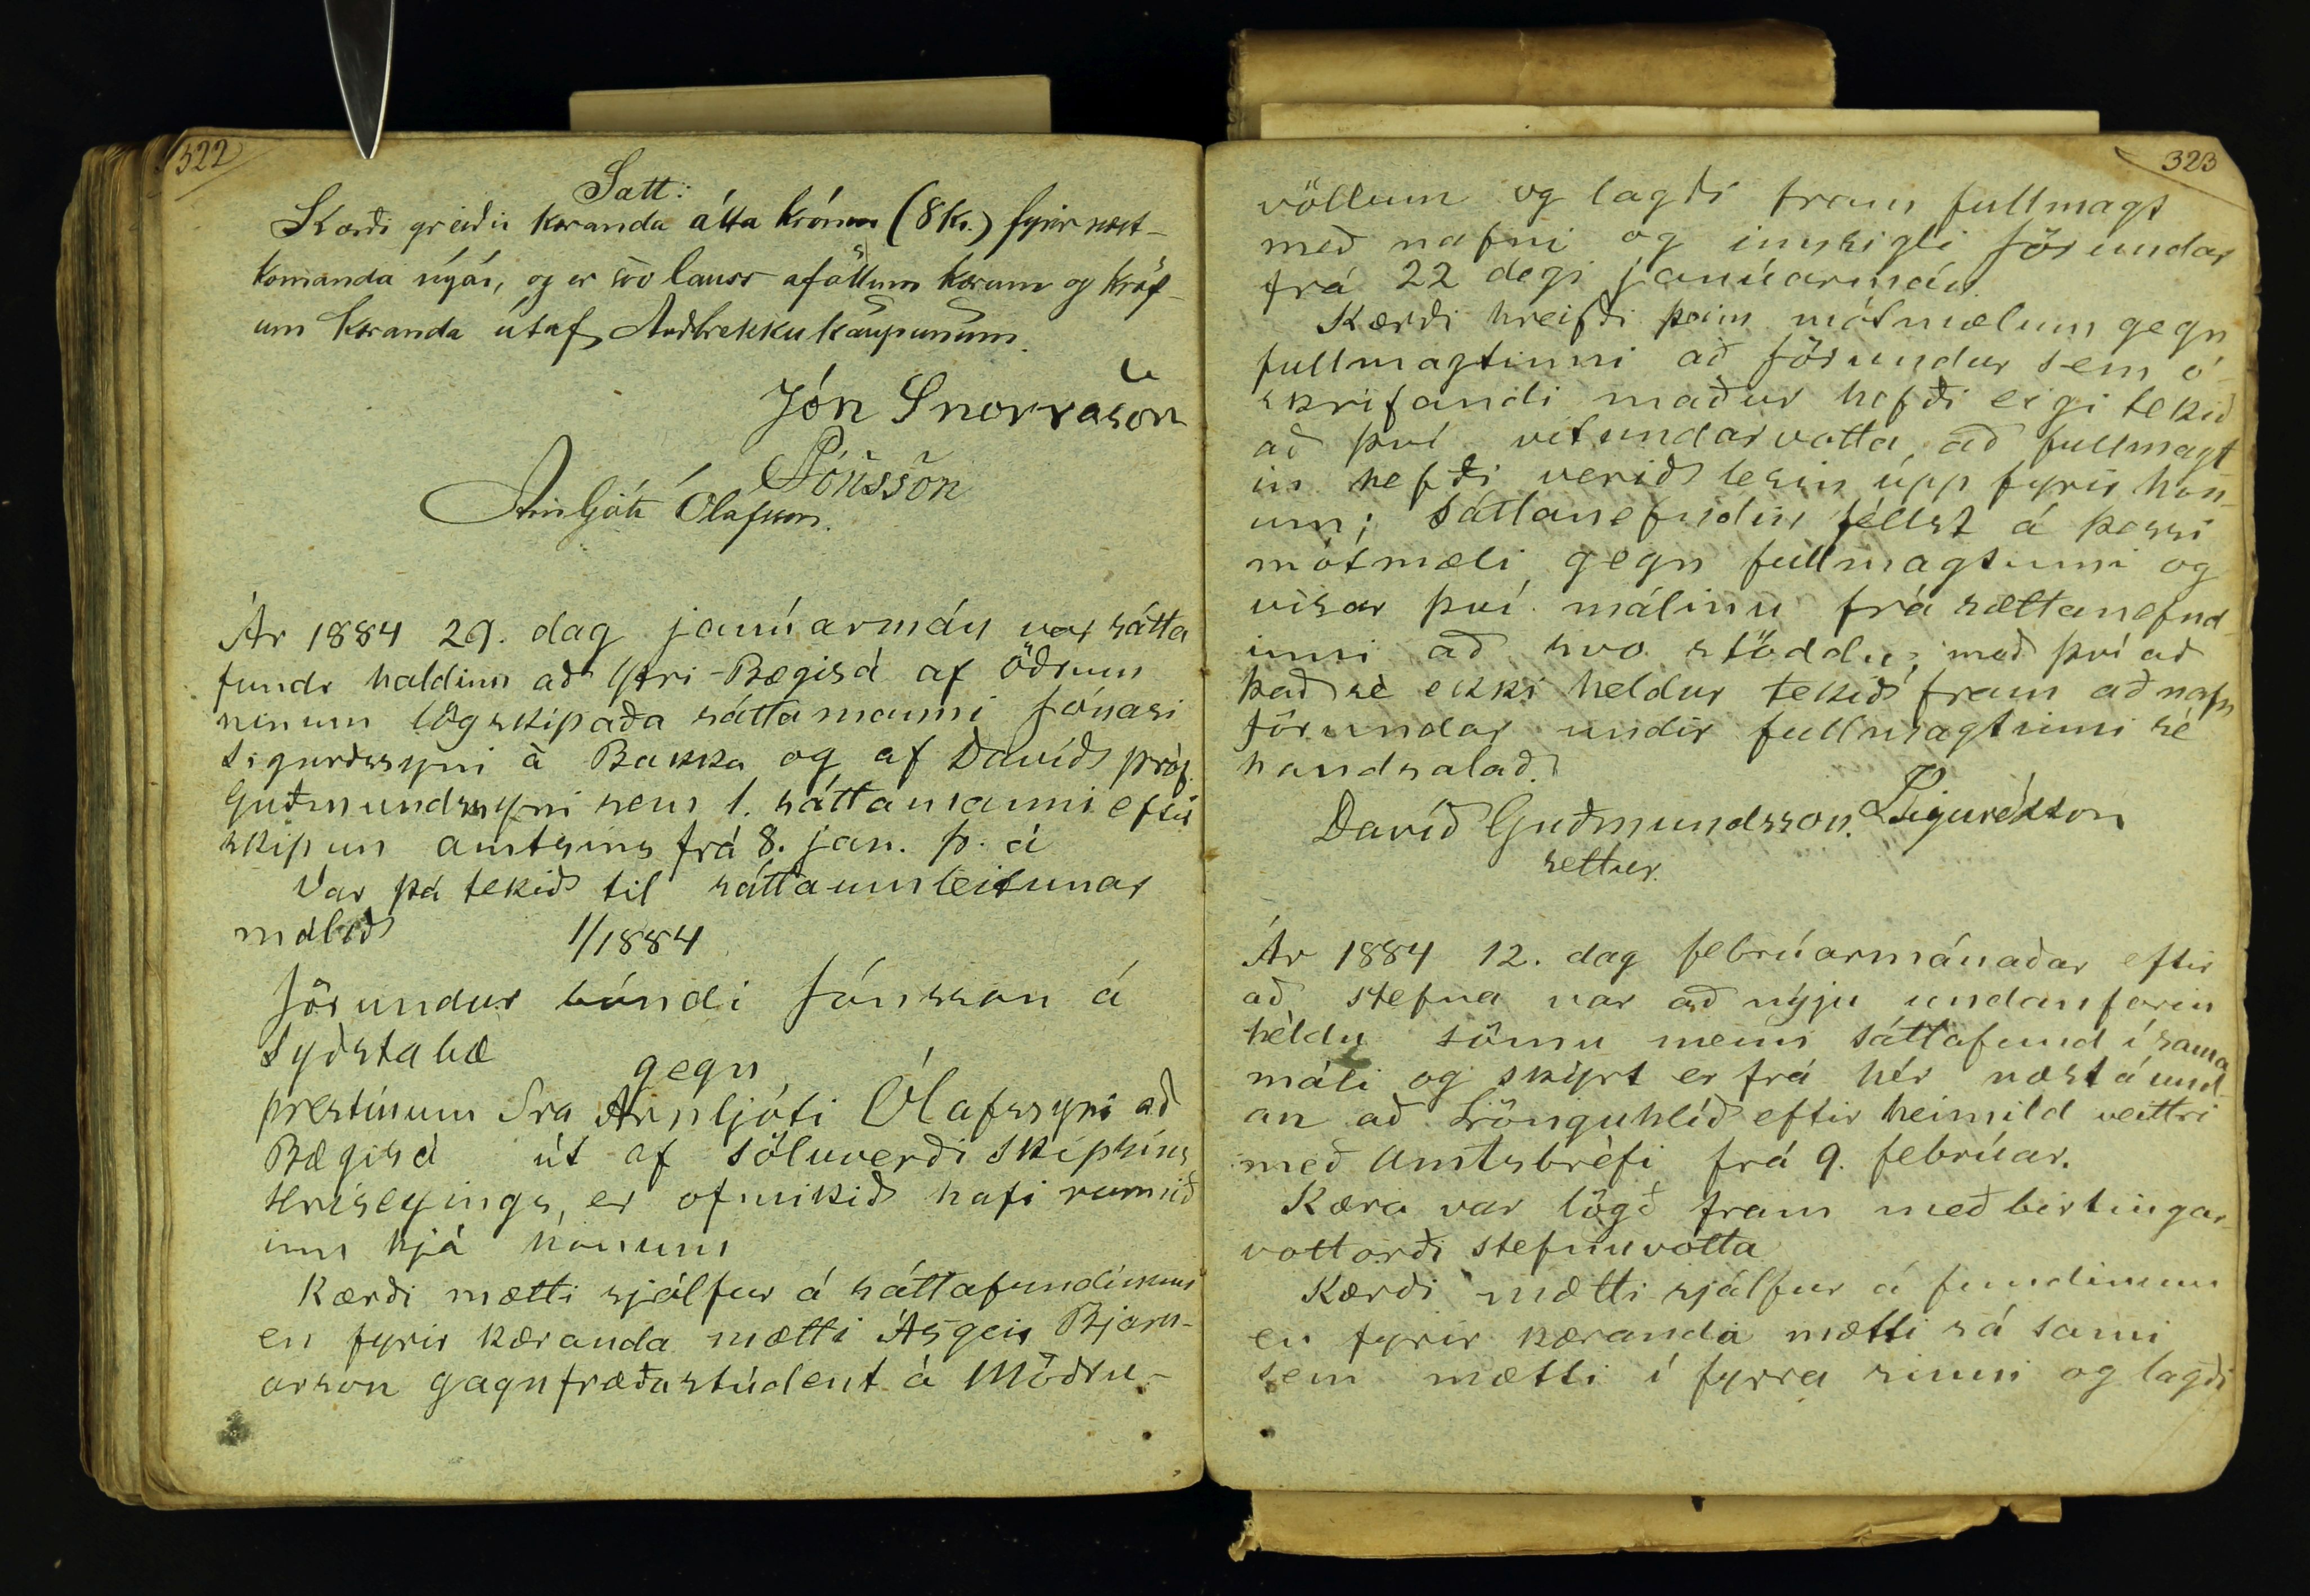 322
Sátt:
Kærði greiðir kæranda átta krónur (8 kr.) fyrir næst-
komanda nýár, og er svo lauss af öllum kærum og kröf-
um kæranda útaf Auðbrekkukaupunum.
Jón Snorrason
Jónsson
Arnljótr Ólafsson.
Ár 1884 29. dag janúarmán var sátta
fundr haldinn að Ytri-Bægisá af öðrum
hinum lögskipaða sáttamanni Jónasi
Sigurðssyni á Bakka og af Davíð próf.
Guðmundssyni sem 1. sáttamanni eftir
skipun amtsins frá 8. jan. þ. á
Var þá tekið til sáttaumleitunar
málið 1/1884
Jörundur bóndi Jónsson á
Syðstabæ
gegn
prestinum Sra Arnljóti Ólafssyni að
Bægisá út af söluverði skipsins
Hríseyings, er ofmikið hafi runnið
inn hjá honum
Kærði mætti sjálfur á sáttafundinum
en fyrir kæranda mætti Ásgeir Bjarn-
arson gagnfræðastúdent á Möðru-
323
völlum og lagði fram fullmagt
með nafni og innsigli Jörundar
frá 22 degi janúarmán.
Kærði hreifði þeim mótmælum gegn
fullmagtinni að Jörundur sem ó-
skrifandi maður hefði eigi tekið
að því vitundarvotta, að fullmagt
in hefði verið lesin upp fyrir hon-
um; Sáttanefndin féllst á þessi
mótmæli gegn fullmagtinni og
vísar því málinu frá sættanefnd-
inni að svo stöddu, með því að
það sé ekki heldur tekið fram að nafn
Jörundar undir fullmagtinni sé
handsalað.
Davíð Guðmundsson. J Sigurðsson
settur.
Ár 1884 12. dag febrúarmánaðar eftir
að stefna var að nýju undanfarin
héldu sömu menn sáttafund í sama
máli og skýrt er frá hér næst á und-
an að Lönguhlíð eftir heimild veittri
með Amtsbréfi frá 9. febrúar.
Kæra var lögð fram með birtingar-
vottorði stefnuvotta
Kærði mætti sjálfur á fundinum
en fyrir kæranda mætti sá sami
sem mætti í fyrra sinni og lagði